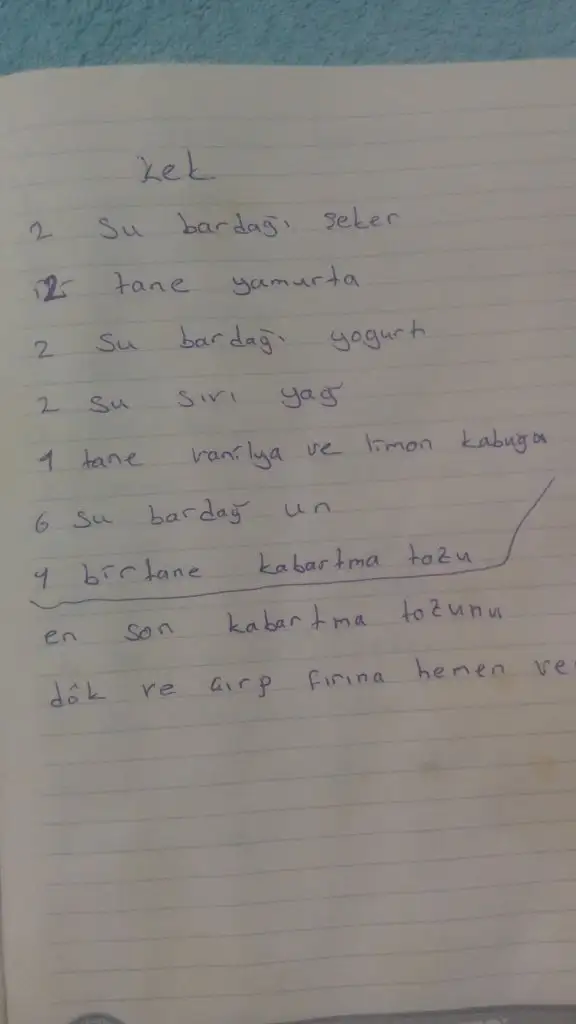 kek
2 su bardağı şeker
12 tane yamurta
2 su bardağı yogurt
2 su sıvı yağ
1 tane vanilya ve limon kabuğu
6 su bardağ un
1 bir tane kabartma tozu
en son kabartma tozunu
dök ve çırp fırına hemen ve